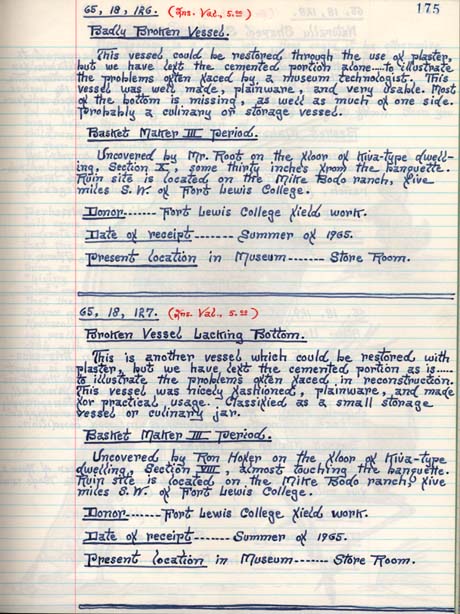 175
65, 18, 126. (Ins. Val., 5.00)
Badly Broken Vessel.
This vessel could be restored through the use of plaster,
but we have left the cemented portion alone....to illustrate
the problems often faced by a museum technologist. This
vessel was well made, plainware, and very usable. Most
of the bottom is missing, as well as much of one side.
Probably a culinary or storage vessel.
Basket Maker III Period.
Uncovered by Mr. Root on the floor of Kiva-type dwell-
ing, Section X, some thirty inches from the banquette.
Ruin site is located on the Mike Bodo ranch, five
miles S.W. of Fort Lewis College.
Donor------- Fort Lewis College field work.
Date of receipt------- Summer of 1965.
Present location in Museum------- Store Room.
65, 18, 127. (Ins. Val., 5.00)
Broken Vessel Lacking Bottom.
This is another vessel which could be restored with
plaster, but we have left the cemented portion as is.....
to illustrate the problems often faced in reconstruction.
This vessel was nicely fashioned, plainware, and made
for practical usage. Classified as a small storage
vessel or culinary jar.
Basket Maker III Period.
Uncovered by Ron Hofer on the floor of Kiva-type
dwelling, Section VIII, almost touching the banquette.
Ruin site is located on the Mike Bodo ranch, five
miles S.W. of Fort Lewis College.
Donor-------Fort Lewis College field work.
Date of receipt-------Summer of 1965.
Present location in Museum------- Store Room.